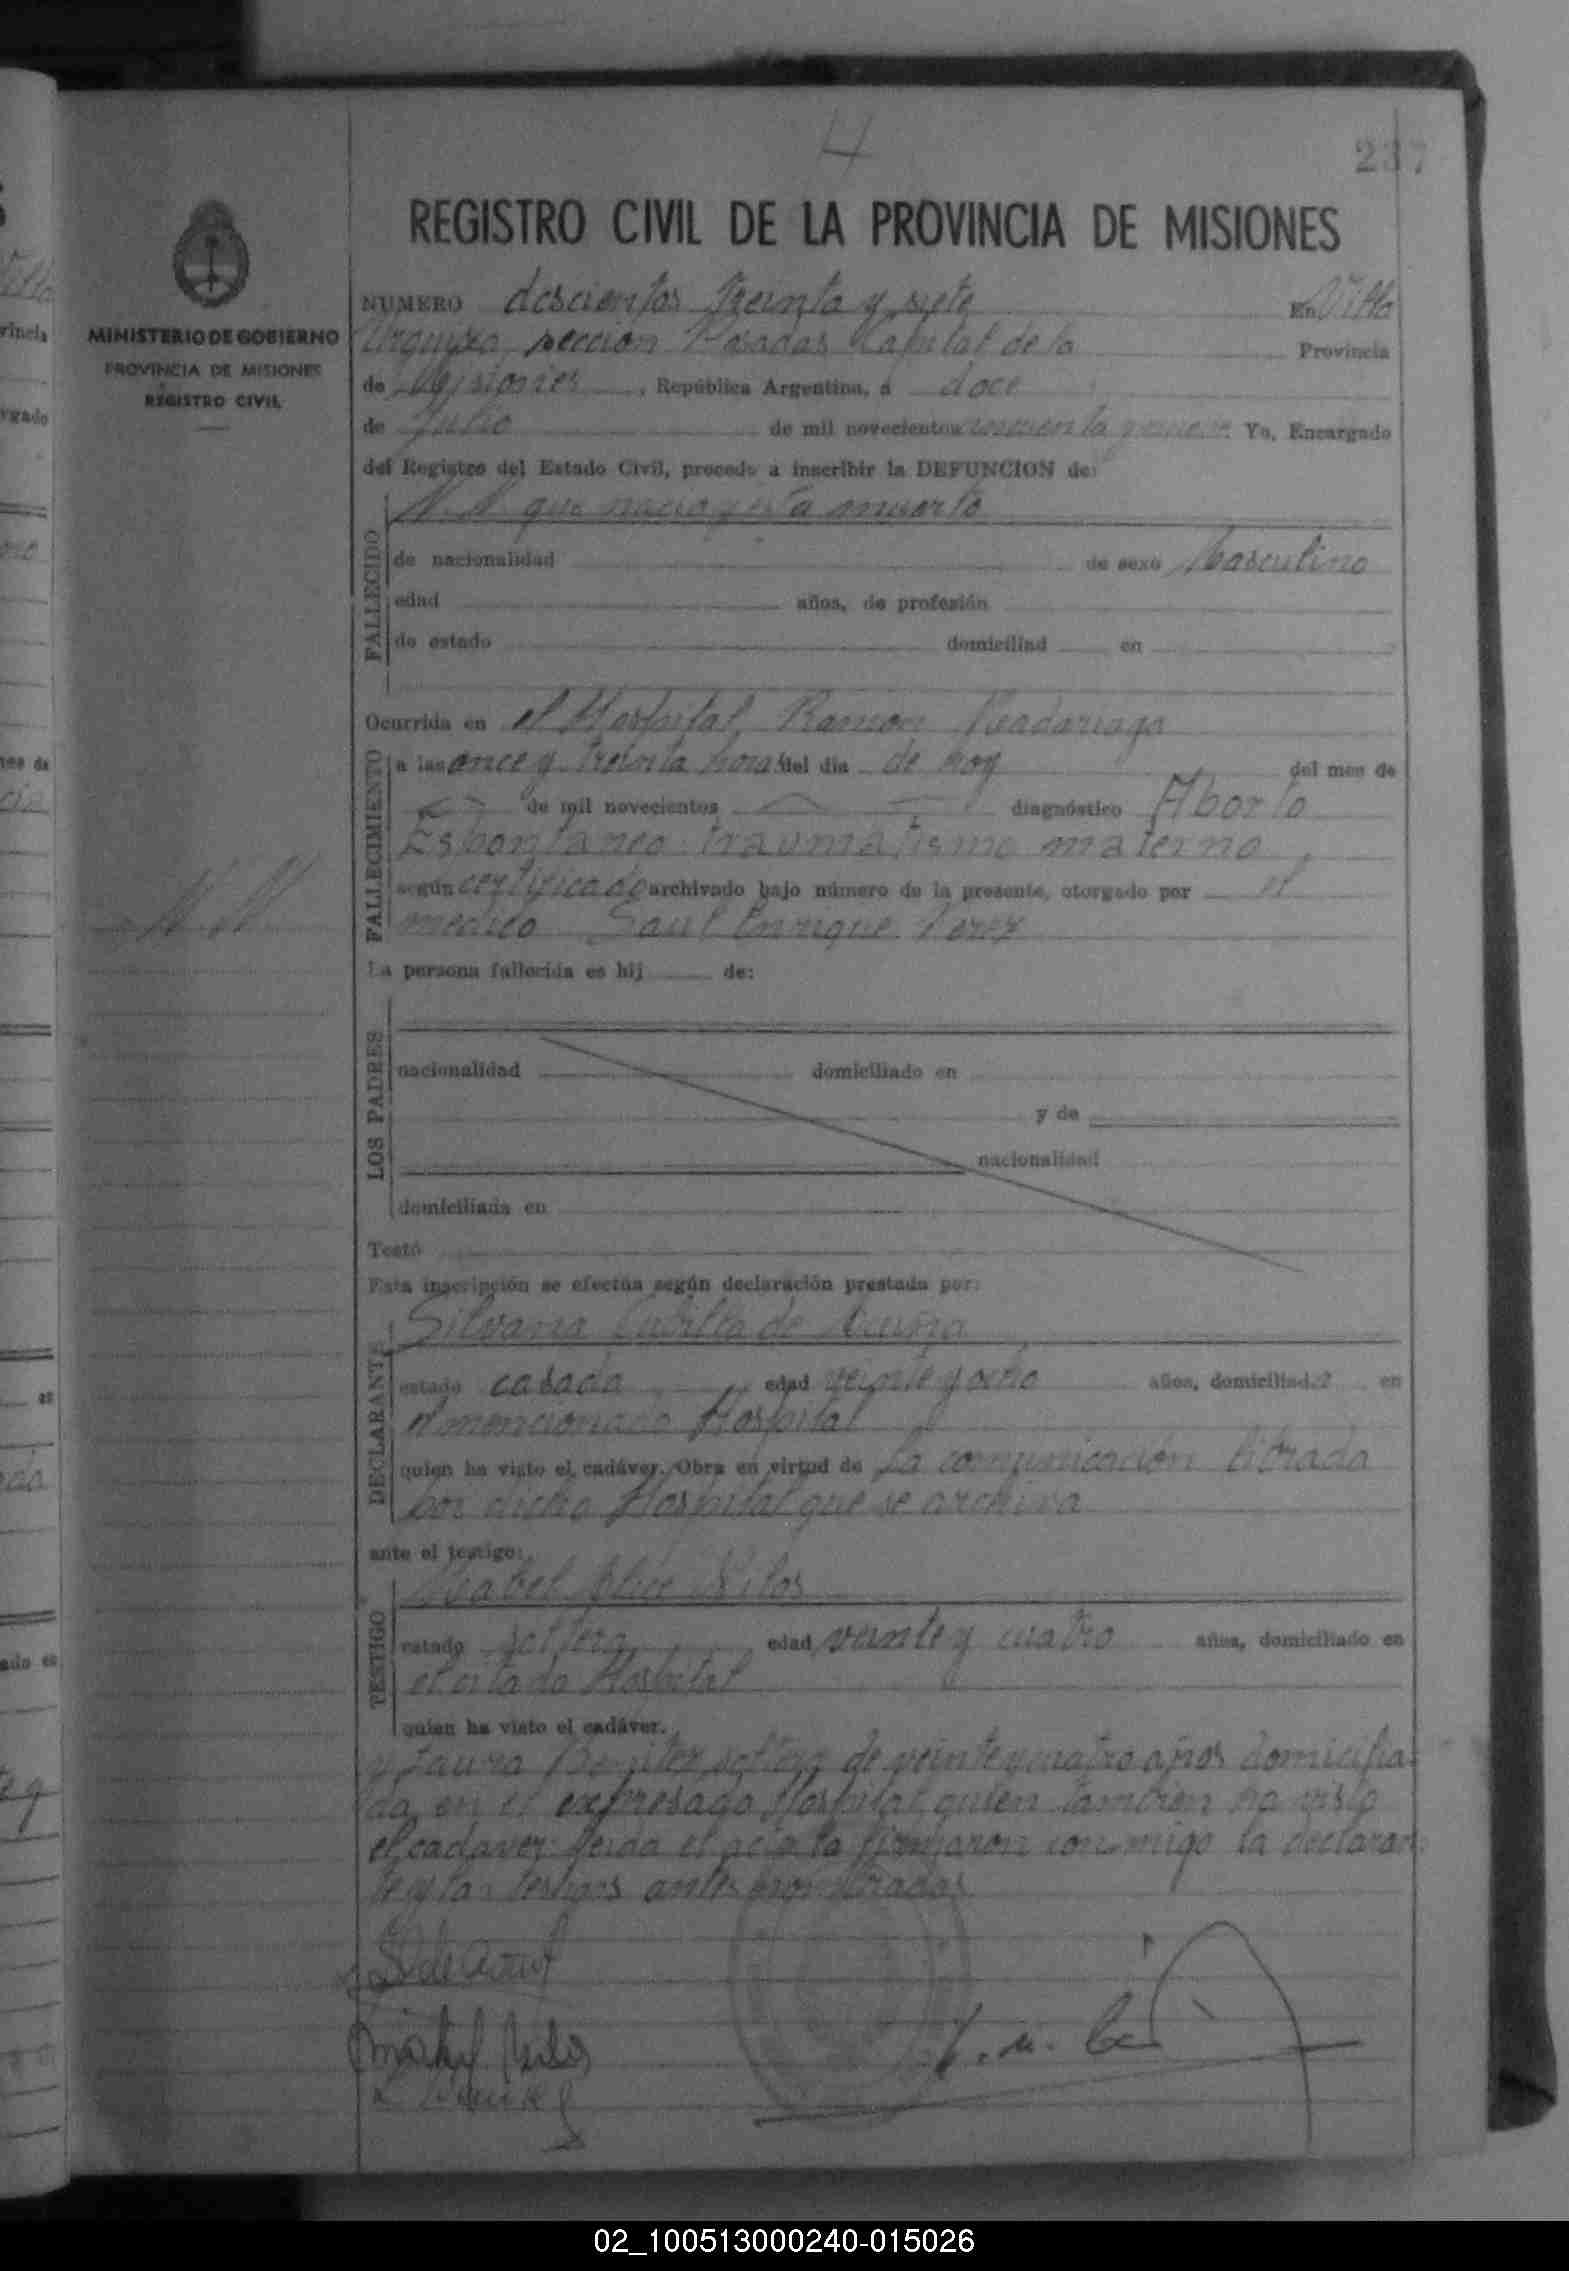 4
237
REGISTRO CIVIL DE LA PROVINCIA DE MISIONES
MINISTERIO DE GOBIERNO
PROVINCIA DE MISIONES
REGISTRO CIVIL
NUMERO doscientos treinta y siete En Villa
Urquiza sección Posadas Capital de la Provincia
de Misiones, República Argentina, a doce
de Julio de mil novecientos Yo, Encargado
del Registro del Estado Civil, procedo a inscribir la DEFUNCION de:
N.N. que nacio y está muerto
FALLECIDO
de nacionalidad de sexo Masculino
edad años, de profesión
de estado domiciliad en
Ocurrida en el Hospital Ramon Madariaga
FALLECIMIENTO
a las once y treinta horas del día de hoy del mes de
de mil novecientos diagnóstico Aborto
Espontaneo traumatismo materno
según certificado archivado bajo número de la presente, otorgado por el
médico Saul Enrique Perez
N.N.
La persona fallecida es hij de:
LOS PADRES
nacionalidad domiciliado en
y de
nacionalidad
domiciliada en
Testó
Esta inscripción se efectúa según declaración prestada por:
Silvana de Acuña
DECLARANTE
estado casada edad veinte y ocho años, domiciliad a en
el mencionado Hospital
quien ha visto el cadáver. Obra en virtud de La comunicación librada
por dicho Hospital que se archiva
ante el testigo:
Mabel
TESTIGO
estado soltera edad veinte y cuatro años, domiciliado en
el citado Hospital
quien ha visto el cadáver.
y Laura Benitez soltera de veinte y cuatro años domicilia
da en el expresado Hospital quien también ha visto
el cadaver. Leida el acta la firmaron conmigo la declaran
te y las testigos antes nombradas
02_100513000240-015026